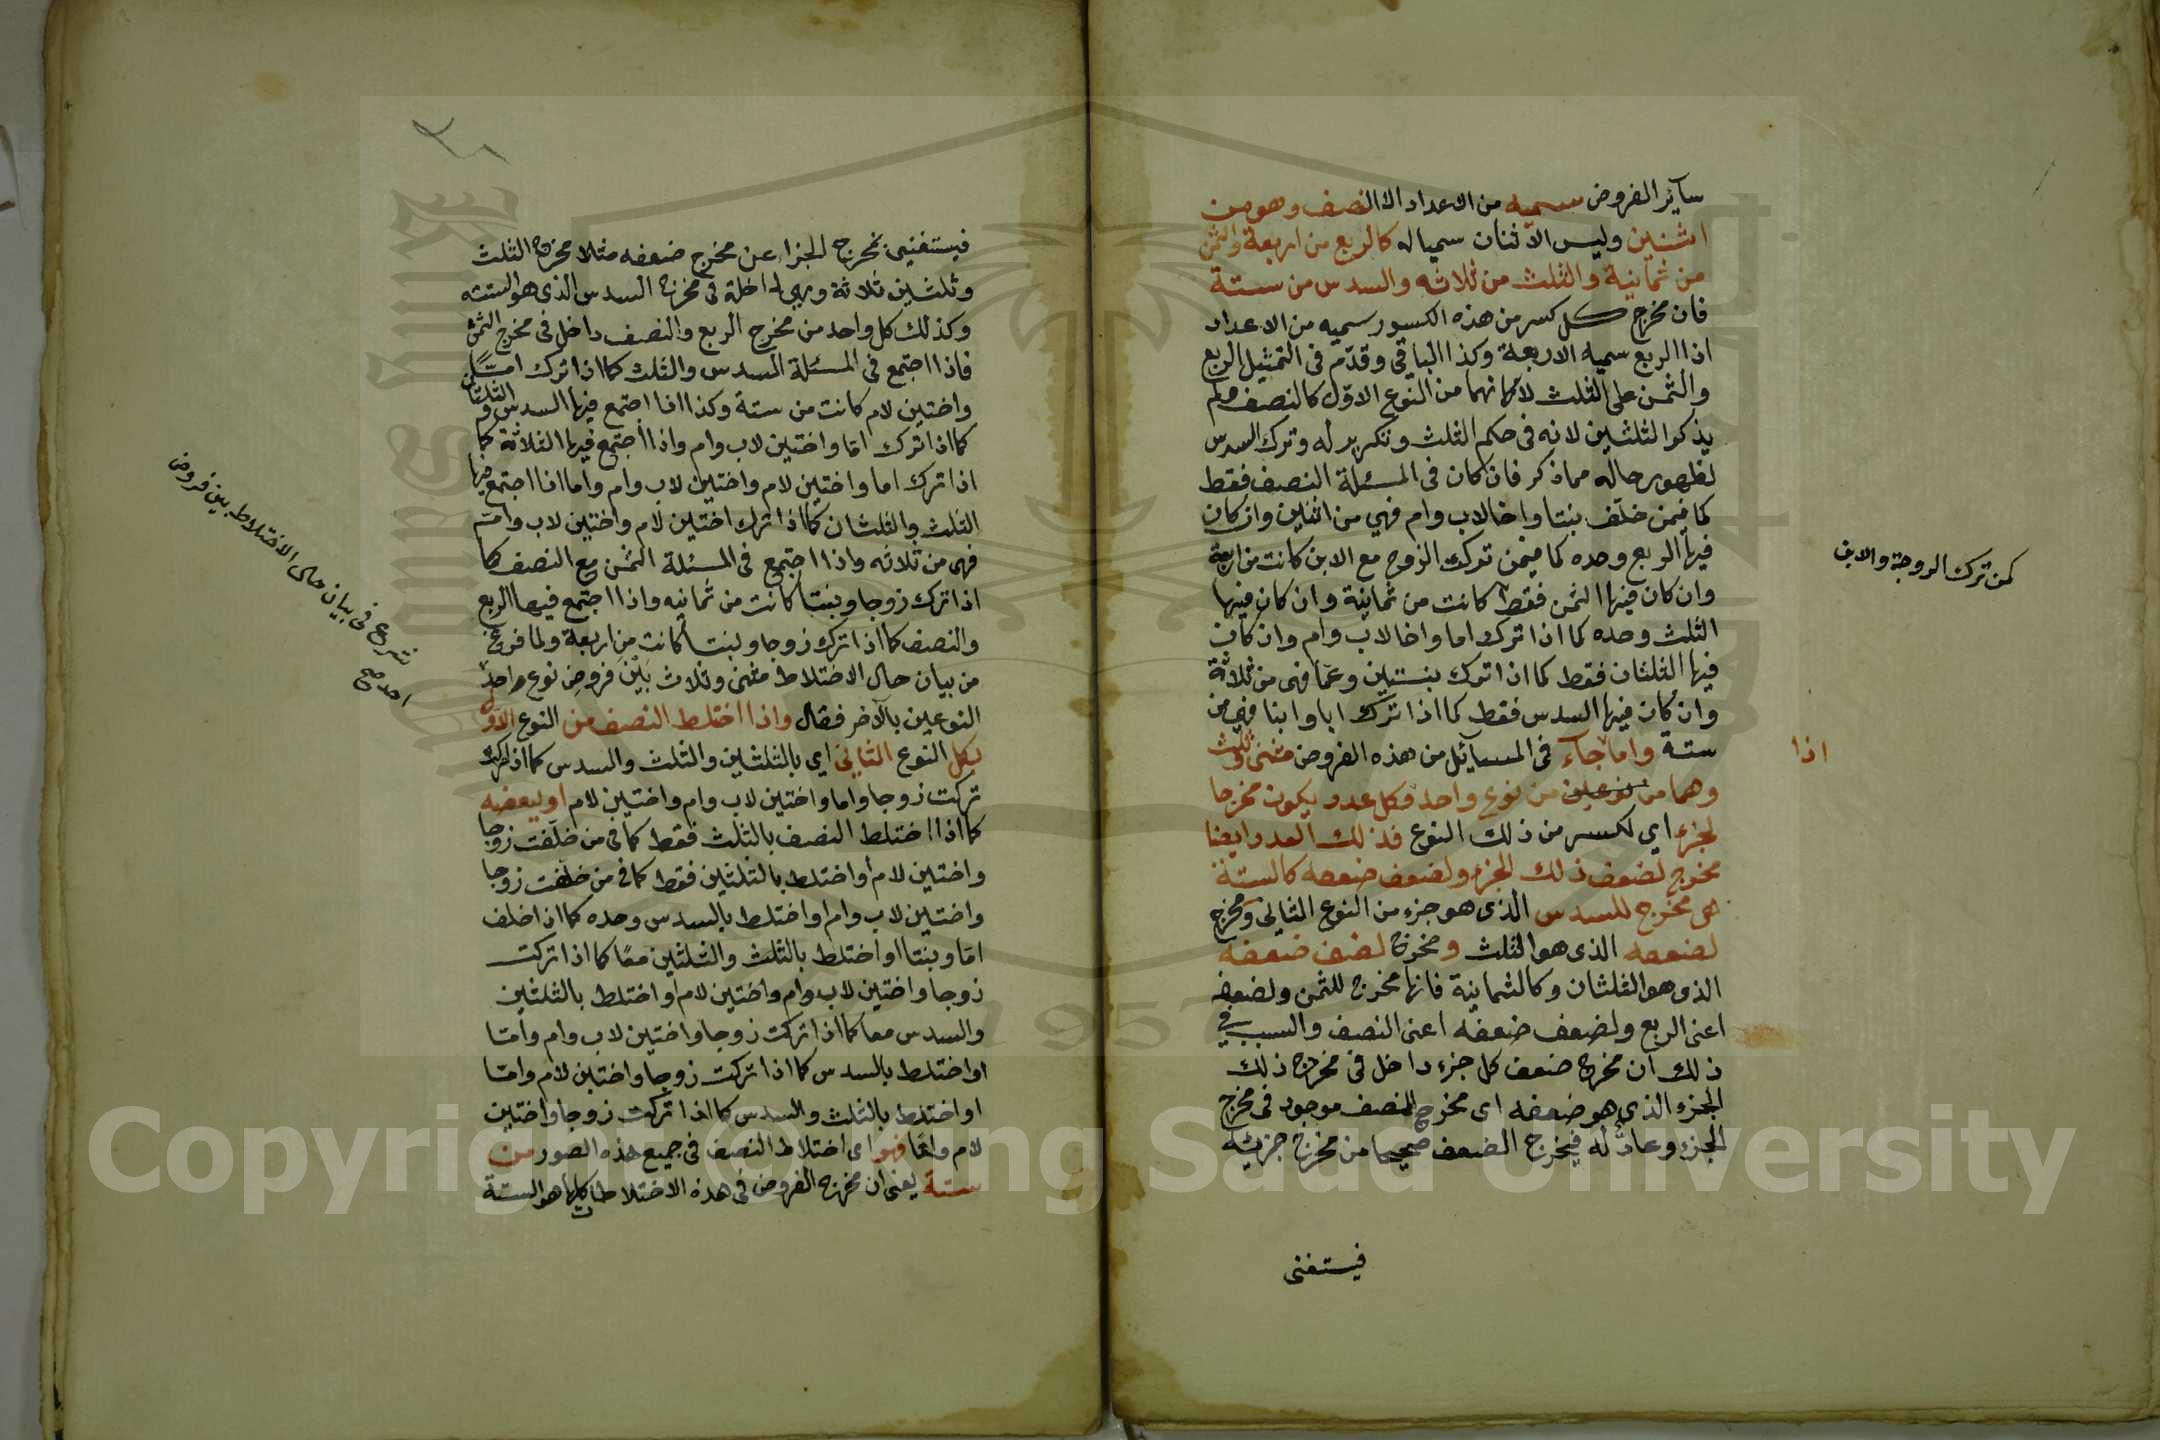 سآئر الفروض سميه من الاعداد الا النصف وهو من
اثنين وليس الاثنان سمياله كالربع من اربعة والثمن
من ثمانية والثلث من ثلاثه والسدس من ستة
فان مخرج كل كسر من هذه الكسور سميه من الاعداد
اذا الربع سميه الاربعة وكذا الباقي وقدّم في التمثيل الربع
والثمن على الثلث لانهما من النوع الاوّل كالنصف ولم
يذكر الثلثين لانه في حكم الثلث وتكرير له وترك السدس
لظهور حاله مما ذكر فان كان في المسئلة النصف فقط
كما فيمن خلّف بنتا واخا لاب وام فهي من اثنين وان كان
فيها الربع وحده كما فيمن تركت الزوج مع الابن كانت من اربعة
وان كان فيها الثمن فقط كانت من ثمانية وان كان فيها
الثلث وحده كما اذا ترك اما واخا لاب وام وان كان
فيها الثلثان فقط كما اذا ترك بنتين وعمّا فهي من ثلاثة
وان كان فيها السدس فقط كما اذا ترك ابا وابنا فهي من
ستة واما جاء في المسآئل من هذه الفروض مثنى وثلث
وهما من نوعين من نوع واحد فكل عدد يكون مخرجا
لجزء اي لكسر من ذلك النوع فذلك العدد ايضا
مخرج لضعف ذلك الجزء ولضعف ضعفه كالستة
هي مخرج للسدس الذى هو جزء من النوع الثاني ومخرج
لضعفه الذى هو الثلث ومخرج لضعف ضعفه
الذى هو الثلثان وكالثمانية فانها مخرج للثمن ولضعفه
اعنى الربع ولضعف ضعفه اعنى النصف والسبب في
ذلك ان مخرج ضعف كل جزء داخل في مخرج ذلك
الجزء الذى هو ضعفه اى مخرج النصف موجود في مخرج
الجزء وعادّ له فيخرج الضعف صحيحا من مخرج جزئيه
فيستغنى
كمن ترك الزوجة والابن
اذا
فيستغنى بمخرج الجزء عن مخرج ضعفه مثلا مخرج الثلث
وثلثين ثلاثة وهي داخلة في مخرج السدس الذى هو الستة
وكذلك كل واحد من مخرج الربع والنصف داخل في مخرج الثمن
فاذا اجتمع في المسئلة السدس والثلث كما اذا ترك امّا
واختين لام كانت من ستة وكذا اذا اجتمع فيها السدس والثلثان
كما اذا ترك امّا واختين لاب وام واذا اجتمع فيها الثلاثة كما
اذا ترك اما واختين لام واختين لاب وام واما اذا اجتمع فيها
الثلث والثلثان كما اذا ترك اختين لام واختين لاب وام
فهى من ثلاثه واذا اجتمع في المسئلة الثمن مع النصف كما
اذا ترك زوجا وبنتا كانت من ثمانيه واذا اجتمع فيها الربع
والنصف كما اذا ترك زوجا وبنتا كانت من اربعة ولما فرغ
من بيان حال الاختلاط مثنى وثلاث بين فروض نوع واحد
النوعين بالآخر فقال واذا اختلط النصف من النوع الاوّل
بكل النوع الثاني اي بالثلثين والثلث والسدس كما اذا
تركت زوجا واما واختين لاب وام واختين لام او ببعضه
كما اذا اختلط النصف بالثلث فقط كما في من خلّفت زوجا
واختين لام او اختلط بالثلثين فقط كما في من خلّفت زوجا
واختين لاب وام او اختلط بالسدس وحده كما اذا خلف
امّا وبنتا او اختلط بالثلث والثلثين معًا كما اذا تركت
زوجا واختين لاب وام واختين لام او اختلط بالثلثين
والسدس معا كما اذا تركت زوجا واختين لاب وام وامّا
او اختلط بالسدس كما اذا تركت زوجا واختين لام وامّا
او اختلط بالثلث والسدس كما اذا تركت زوجا واختين
لام وامّا فهو اى اختلاط النصف في جميع هذه الصور من
ستة يعنى ان مخرج الفروض في هذه الاختلاطات كلها هو الستة
شرع في بيان حال الاختلاط بين فروض
احد صح
King Saud University
1957
Copyright © King Saud University